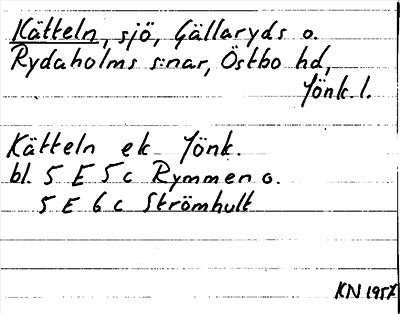 Kätteln, sjö, Gällaryds o.
Rydaholms s:nar, Östbo hd,
Jönk. l.
Kätteln ek Jönk.
bl. 5 E 5 c Rymmen o.
5 E 6 c Strömhult
KN 1957